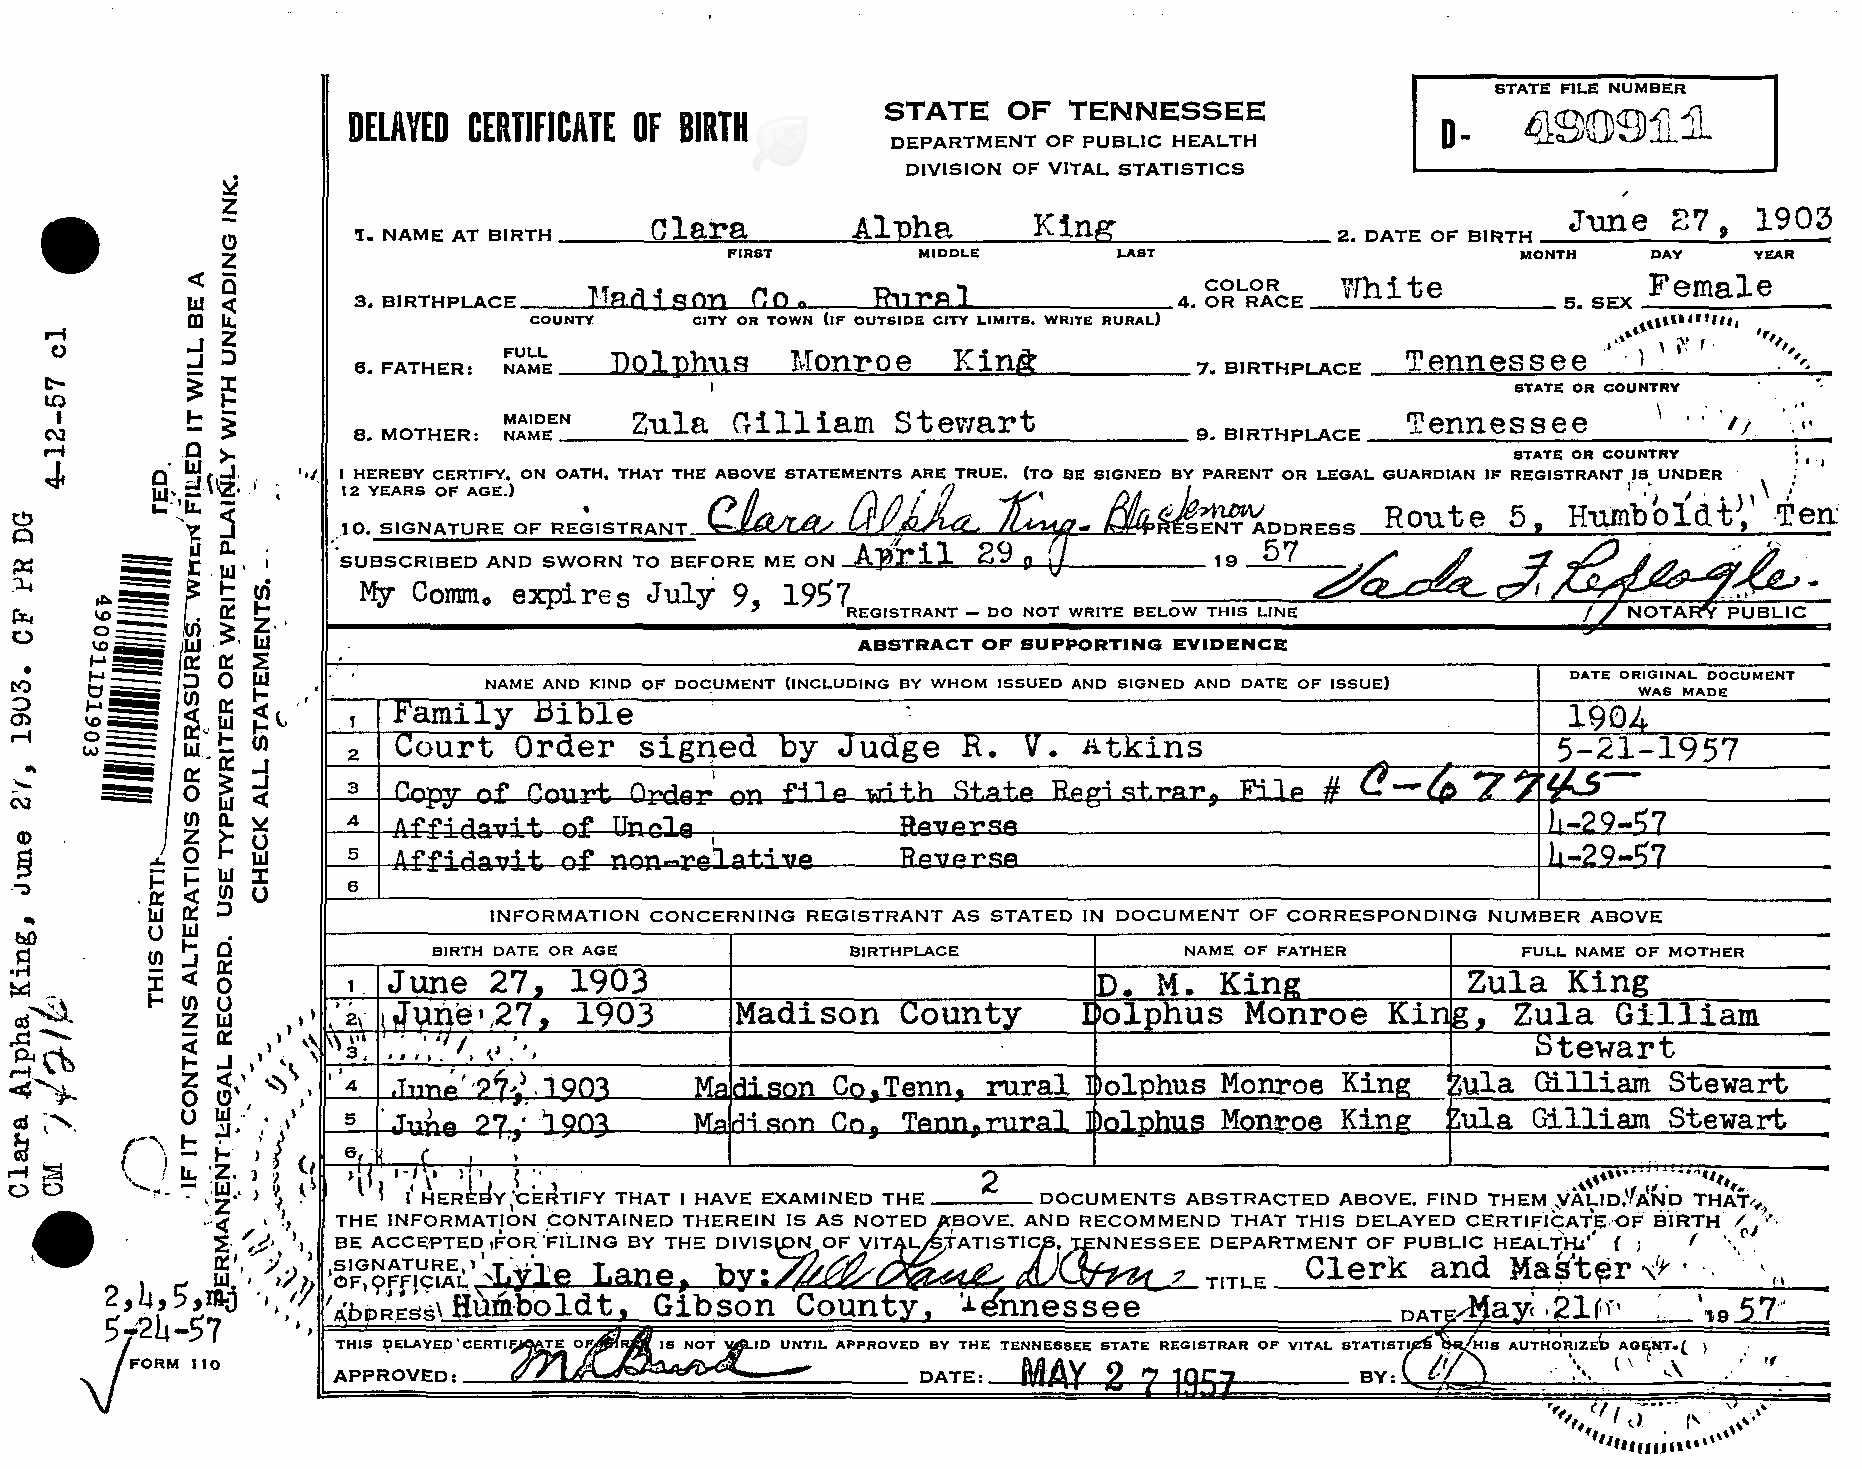 DELAYED CERTIFICATE OF BIRTH
STATE OF TENNESSEE
DEPARTMENT OF PUBLIC HEALTH
DIVISION OF VITAL STATISTICS
STATE FILE NUMBER
D- 490911
1. NAME AT BIRTH Clara Alpha King 2. DATE OF BIRTH June 27, 1903
FIRST MIDDLE LAST MONTH DAY YEAR
3. BIRTHPLACE Madison Co. Rural 4. COLOR OR RACE White 5. SEX Female
COUNTY CITY OR TOWN (IF OUTSIDE CITY LIMITS, WRITE RURAL)
6. FATHER: FULL NAME Dolphus Monroe King 7. BIRTHPLACE Tennessee
STATE OR COUNTRY
8. MOTHER: MAIDEN NAME Zula Gilliam Stewart 9. BIRTHPLACE Tennessee
STATE OR COUNTRY
I HEREBY CERTIFY, ON OATH, THAT THE ABOVE STATEMENTS ARE TRUE. (TO BE SIGNED BY PARENT OR LEGAL GUARDIAN IF REGISTRANT IS UNDER
12 YEARS OF AGE.)
10. SIGNATURE OF REGISTRANT Clara Alpha King-Blackmon PRESENT ADDRESS Route 5, Humboldt, Ten
SUBSCRIBED AND SWORN TO BEFORE ME ON April 29, 19 57
My Comm. expires July 9, 1957 Vada F. Replogle.
REGISTRANT - DO NOT WRITE BELOW THIS LINE NOTARY PUBLIC
ABSTRACT OF SUPPORTING EVIDENCE
NAME AND KIND OF DOCUMENT (INCLUDING BY WHOM ISSUED AND SIGNED AND DATE OF ISSUE) DATE ORIGINAL DOCUMENT
WAS MADE
1 Family Bible 1904
2 Court Order signed by Judge R. V. Atkins 5-21-1957
3 Copy of Court Order on file with State Registrar, File # C-67745
4 Affidavit of Uncle Reverse 4-29-57
5 Affidavit of non-relative Reverse 4-29-57
6
INFORMATION CONCERNING REGISTRANT AS STATED IN DOCUMENT OF CORRESPONDING NUMBER ABOVE
BIRTH DATE OR AGE BIRTHPLACE NAME OF FATHER FULL NAME OF MOTHER
1 June 27, 1903 D. M. King Zula King
2 June 27, 1903 Madison County Dolphus Monroe King, Zula Gilliam
3 Stewart
4 June 27, 1903 Madison Co,Tenn, rural Dolphus Monroe King Zula Gilliam Stewart
5 June 27, 1903 Madison Co, Tenn,rural Dolphus Monroe King Zula Gilliam Stewart
6
I HEREBY CERTIFY THAT I HAVE EXAMINED THE 2 DOCUMENTS ABSTRACTED ABOVE, FIND THEM VALID, AND THAT
THE INFORMATION CONTAINED THEREIN IS AS NOTED ABOVE, AND RECOMMEND THAT THIS DELAYED CERTIFICATE OF BIRTH
BE ACCEPTED FOR FILING BY THE DIVISION OF VITAL STATISTICS, TENNESSEE DEPARTMENT OF PUBLIC HEALTH.
SIGNATURE OF OFFICIAL Lyle Lane, by: Nell Lane D C&M TITLE Clerk and Master
ADDRESS Humboldt, Gibson County, Tennessee DATE May 21 19 57
THIS DELAYED CERTIFICATE OF BIRTH IS NOT VALID UNTIL APPROVED BY THE TENNESSEE STATE REGISTRAR OF VITAL STATISTICS OR HIS AUTHORIZED AGENT.
APPROVED: DATE: MAY 27 1957 BY:
Clara Alpha King, June 27, 1903. CF PR DG 4-12-57 cl
CM 74216
490911D1903
THIS CERTI FIED.
IF IT CONTAINS ALTERATIONS OR ERASURES. WHEN FILED IT WILL BE A
PERMANENT LEGAL RECORD. USE TYPEWRITER OR WRITE PLAINLY WITH UNFADING INK.
CHECK ALL STATEMENTS.
2,4,5,mj
5-24-57
FORM 110